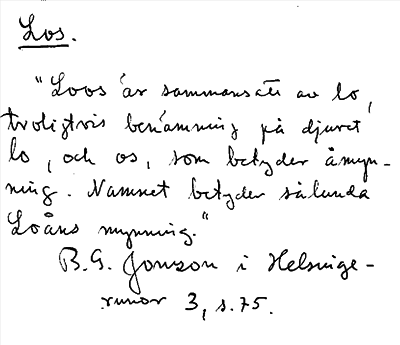 Los.
"Loos är sammansatt av lo,
troligtvis benämning på djuret
lo, och os, som betyder åmyn-
ning. Namnet betyder sålunda
Loåns mynning."
B.G. Jonson i Helsinge-
runor 3, s.75.